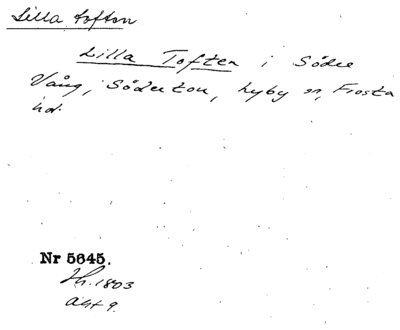 Lilla tofton
Lilla Toften i Södre
Vång, Södertou, Lyby sn, Frosta
hd.
Nr 5645.
Hh. 1803
Akt 9.